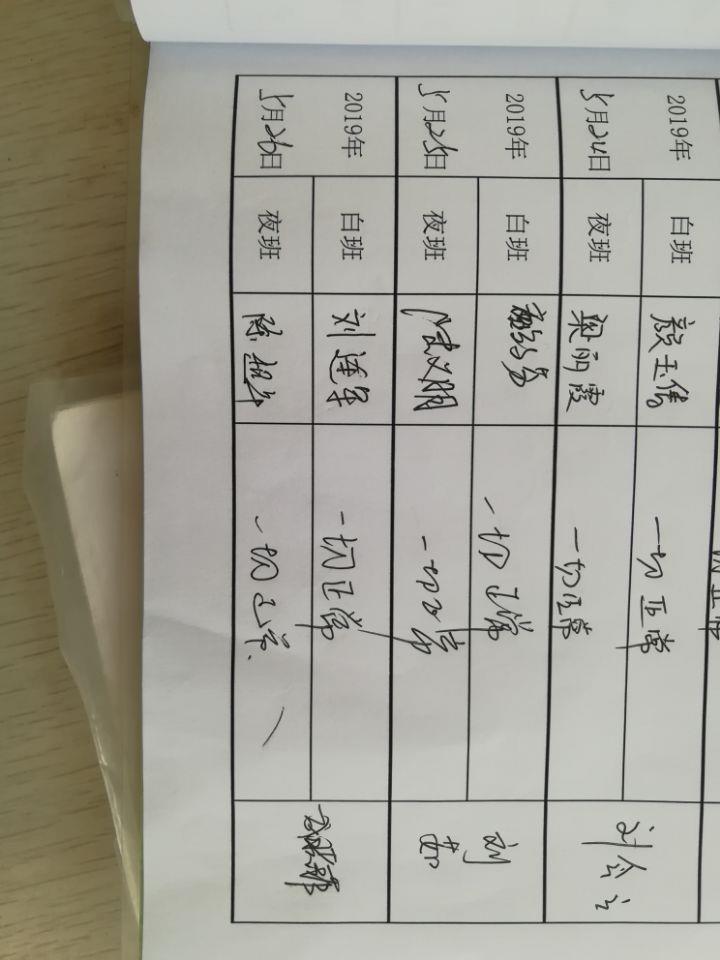 2019年
5月24日
白班
颜玉倩
一切正常
夜班
梁丽霞
一切正常
2019年
5月25日
白班
一切正常
夜班
一切正常
刘茹
2019年
5月26日
白班
刘连军
一切正常
夜班
陈超
一切正常